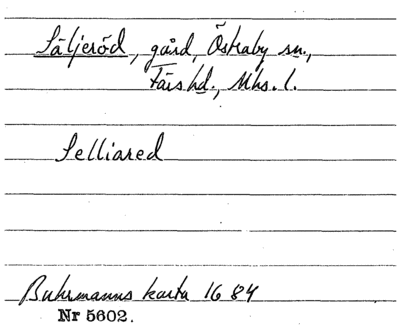 Säljeröd, gård, Östraby sn.,
Färs hd., Mhs. l.
Selliared
Buhrmanns karta 1684
Nr 5602.